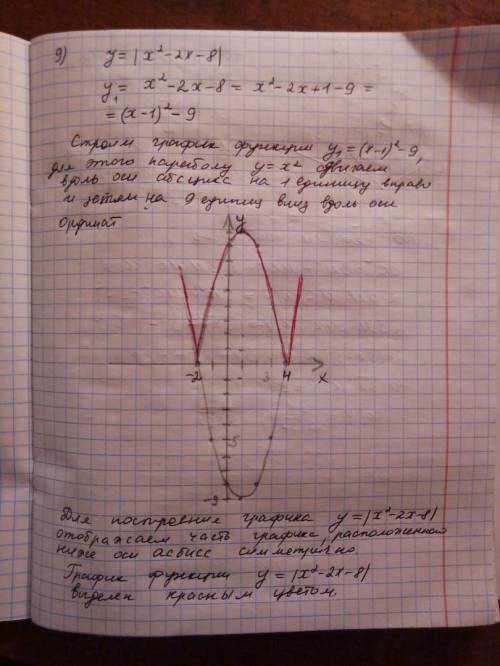 9) y = |x² - 2x - 8|
y₁ = x² - 2x - 8 = x² - 2x + 1 - 9 =
= (x-1)² - 9
Строим график функции y₁ = (x-1)² - 9,
для этого параболу y = x² сдвигаем
вдоль оси абсцисс на 1 единицу вправо
и затем на 9 единиц вниз вдоль оси
ординат
y
-2
3
4
x
5
-9
Для построения графика y = |x² - 2x - 8|
отображаем часть графика, расположенной
ниже оси асбисс симметрично.
График функции y = |x² - 2x - 8|
виделен красным цветом.